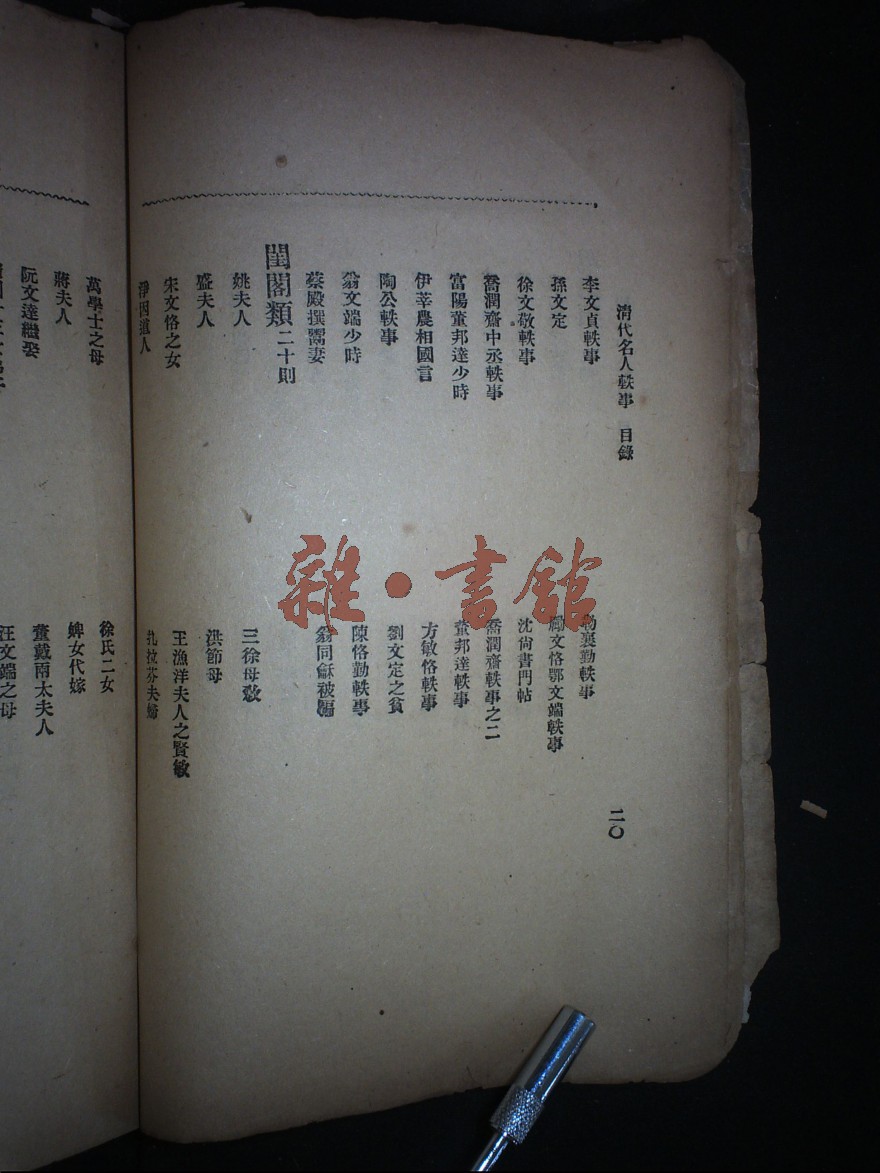 清代名人軼事 目錄 二〇
李文貞軼事 勒襄勤軼事
孫文定 勵文恪鄂文端軼事
徐文敬軼事 沈尙書門帖
喬潤齋中丞軼事 喬潤齋軼事之二
富陽董邦達少時 董邦達軼事
伊莘農相國言 方敏恪軼事
陶公軼事 劉文定之貧
翁文端少時 陳恪勤軼事
蔡殿撰鬻妻 翁同龢被騙
閨閣類二十則
姚夫人 三徐母敎
盛夫人 洪節母
宋文恪之女 王漁洋夫人之賢敏
淨因道人 扎拉芬夫婦
萬學士之母 徐氏二女
蔣夫人 婢女代嫁
阮文達繼娶 董戴兩太夫人
汪文端之母
雜·書館